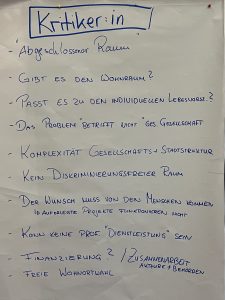 Kritiker:in
- "Abgeschlossener Raum"
- Gibt es den Wohnraum?
- Passt es zu den individuellen
- Das Problem "betrifft nicht" ges. Gesellschaft
- Komplexität Gesellschafts- + Stadtstruktur
- Kein Diskriminierungsfreier Raum
- Der Wunsch muss von den Menschen kommen
Projekte funktionieren nicht
- Kann keine Prof. "Dienstleistung" sein
- Finanzierung? / Zusammenarbeit
Akteure + Behörden
- Freie Wohnortwahl